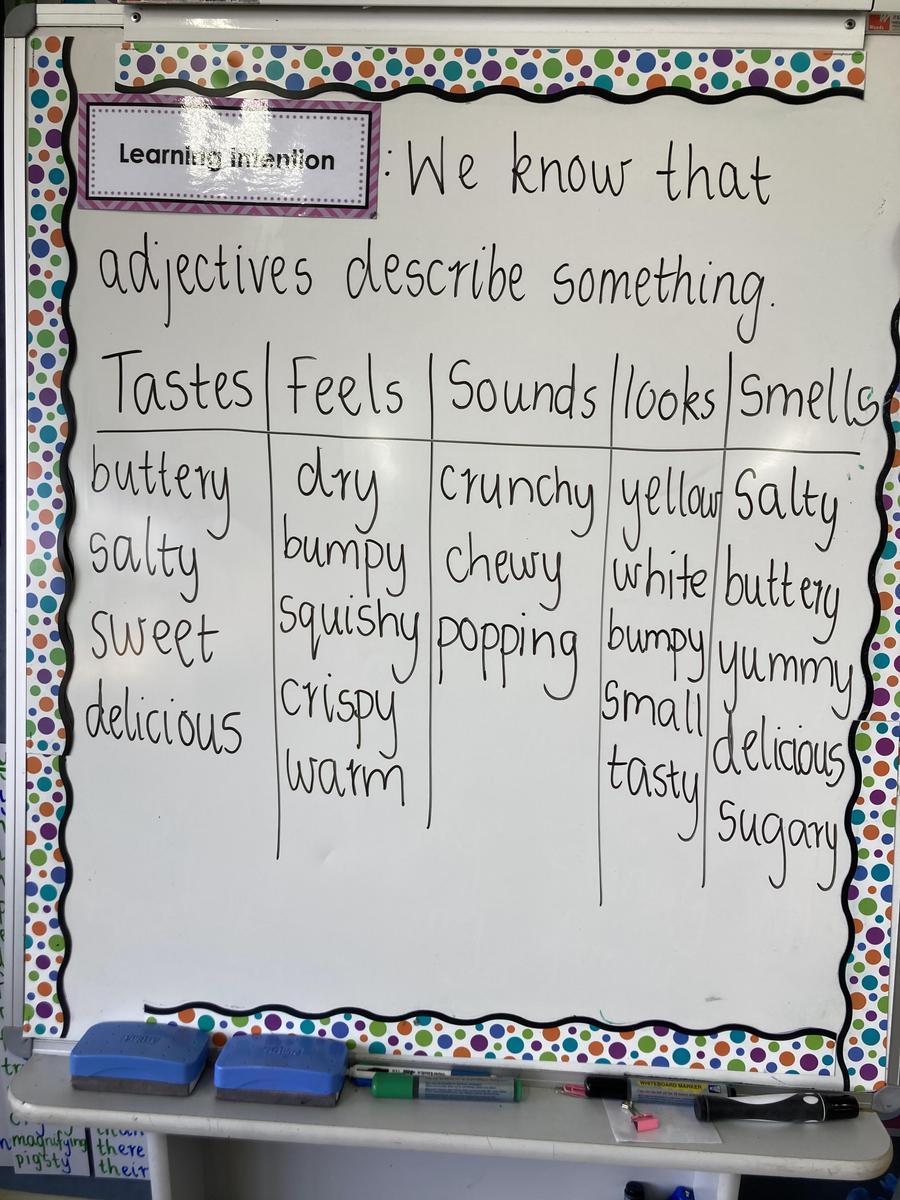 Learning Intention : We know that
adjectives describe something.
Tastes Feels Sounds looks Smells
buttery dry crunchy yellow Salty
salty bumpy chewy white buttery
sweet squishy popping bumpy yummy
delicious crispy small delicious
warm tasty sugary
WHITEBOARD MARKER
magnifying there
pigsty their